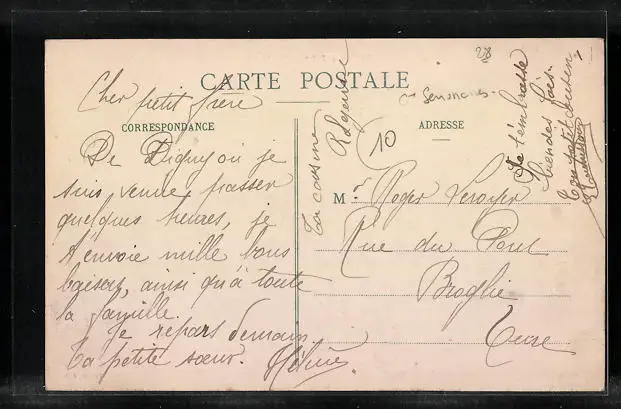 CARTE POSTALE
Cher petit frère
CORRESPONDANCE
De Digny où je
suis venue passer
quelques heures, je
t'envoie mille bons
baisers, ainsi qu'à toute
la famille.
Je repars demain
Ta petite sœur. Hélène
ADRESSE
28
Senonches
10
Mr Roger
Rue du Pont
Broglie
Eure
Ta cousine
Je t'embrasse
biendes fois.
Ton petit cousin